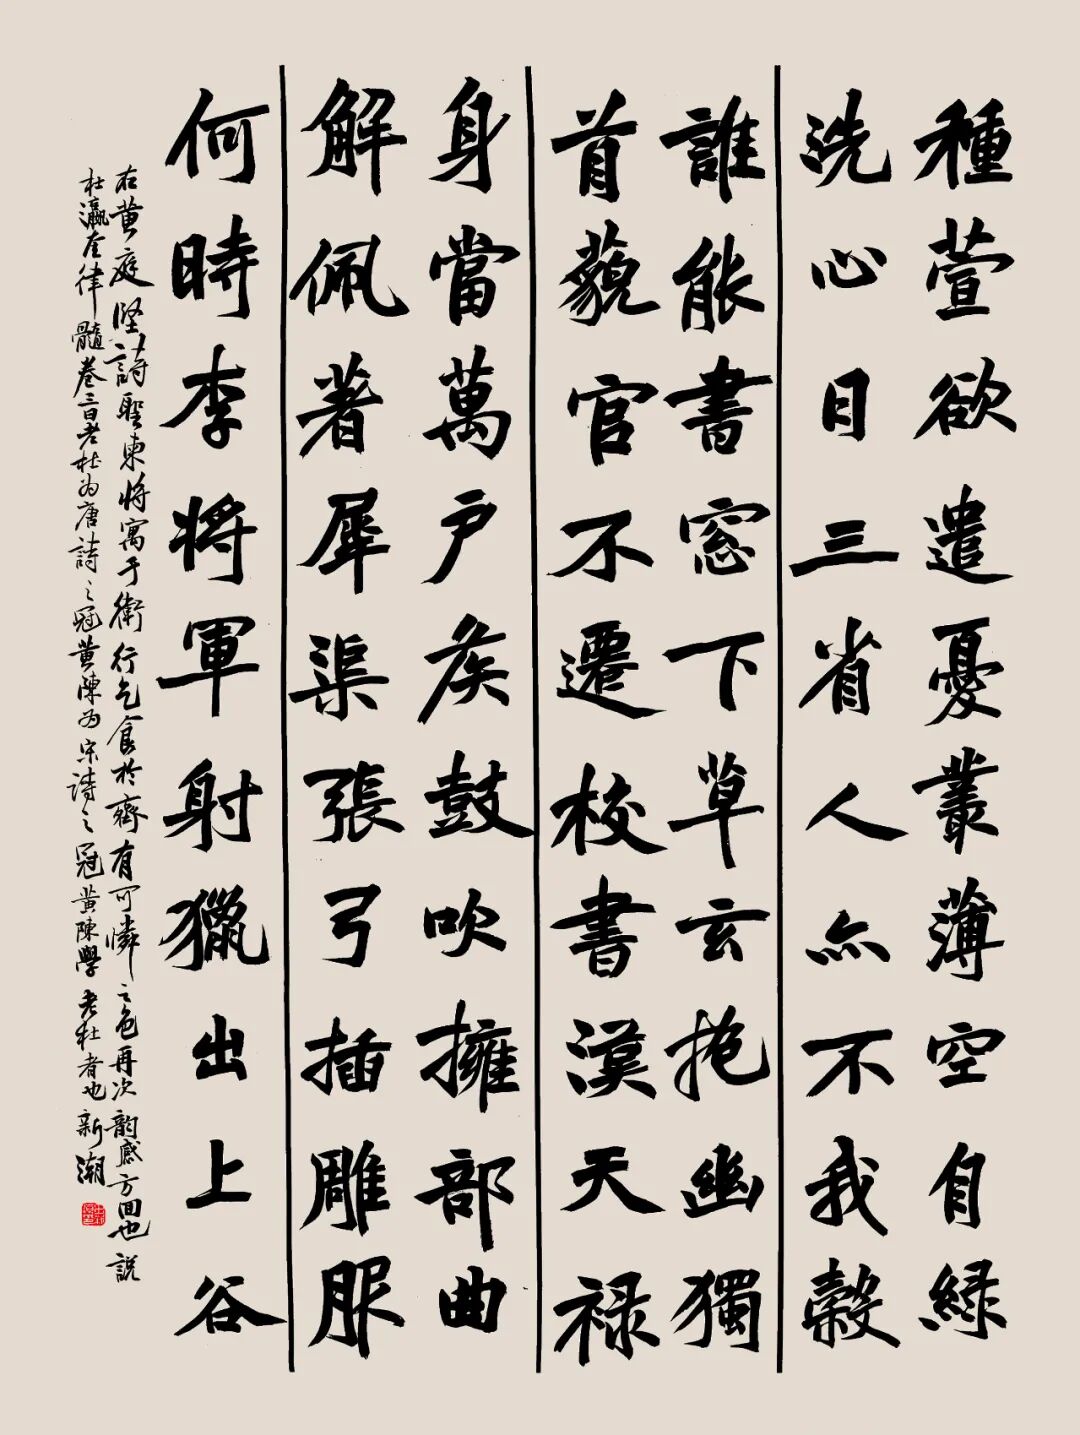 種萱欲遣憂叢薄空自綠
洗心日三省人亦不我穀
誰能書窓下草玄抱幽獨
首藐官不遷校書漢天祿
身當萬戶矦鼓吹擁部曲
解佩著犀渠張弓插雕服
何時李將軍射獵出上谷
右黄庭堅詩聖柬将寓于衛行乞食於齊有可憐之色再次韵感方回也説
杜瀛奎律髓卷三曰老杜为唐詩之冠黄陳为宋詩之冠黄陳學老杜者也新潮